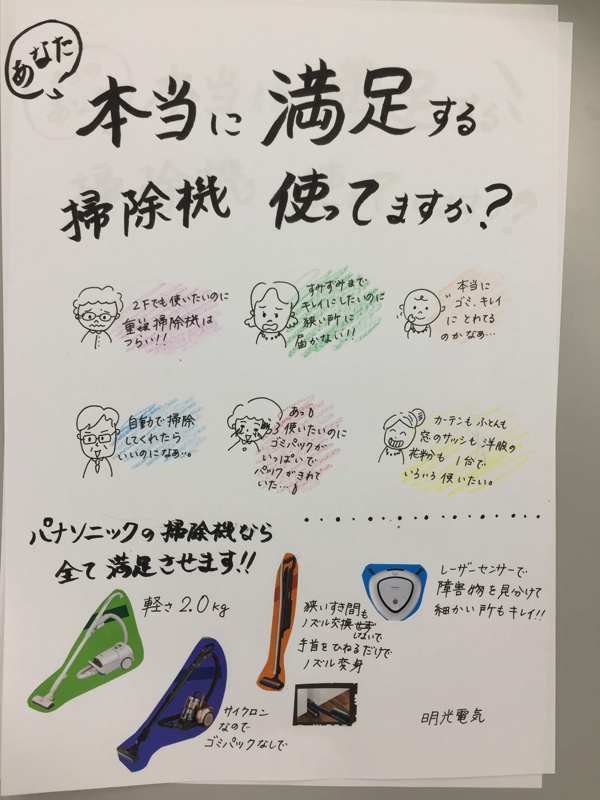 あなた
本当に満足する
掃除機 使ってますか?
2Fでも使いたいのに
重い掃除機は
つらい!!
すみずみまで
キレイにしたいのに
狭い所に
届かない!!
本当に
ゴミ、キレイ
にとれてる
のかなぁ…
自動で掃除
してくれたら
いいのになぁ…。
あっ
使いたいのに
ゴミパックが
いっぱいで
パックがきれて
いた…
カーテンもふとんも
窓のサッシも洋服の
花粉も1台で
いろいろ使いたい。
パナソニックの掃除機なら
全て満足させます!!
軽さ2.0kg
サイクロン
なので
ゴミパックなしで
狭いすき間も
ノズル交換せず
しないで
手首をひねるだけで
ノズル変身
レーザーセンサーで
障害物を見分けて
細かい所もキレイ!!
明光電気